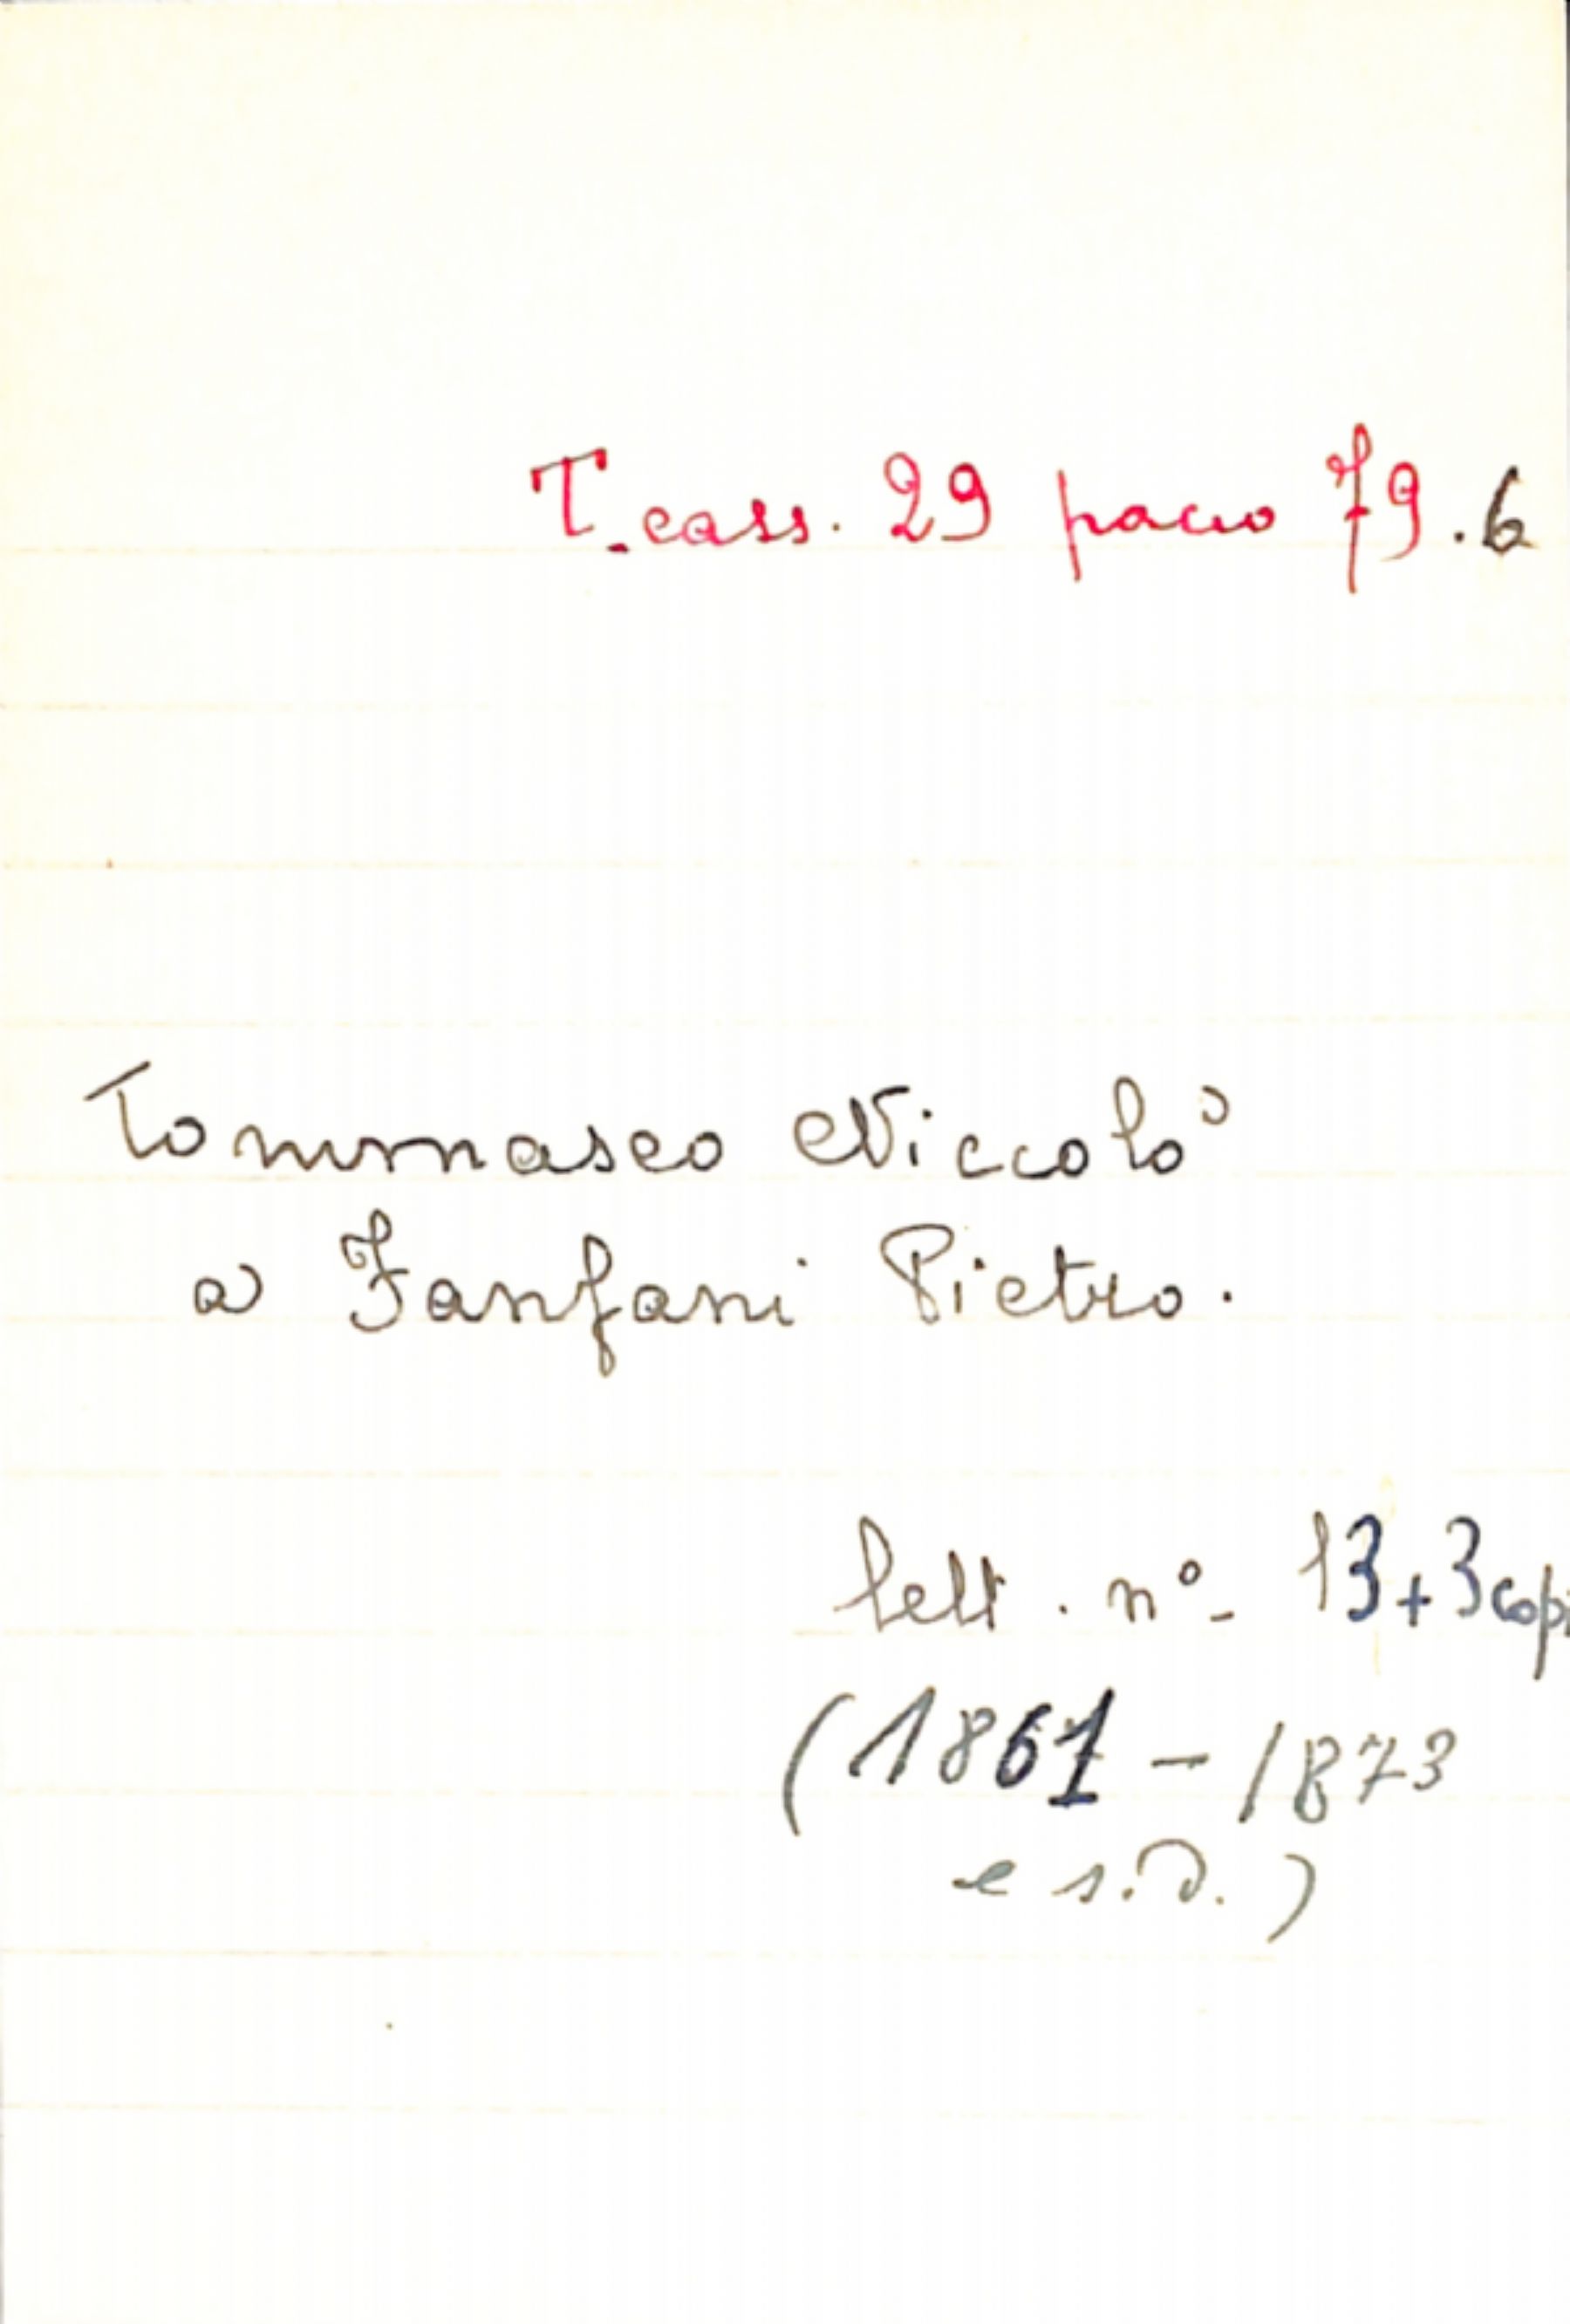 T. cass. 29 pacco 79.6
Tommaseo Niccolò
a Fanfani Pietro.
lett. n° 13+3copi
(1861 - 1873
e s.d.)